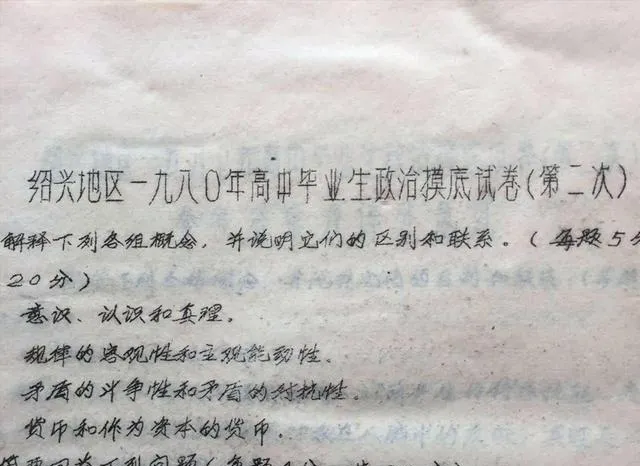 绍兴地区一九八〇年高中毕业生政治摸底试卷(第二次)
解释下列各组概念，并说明它们的区别和联系。(每题5分
20分)
意识、认识和真理。
规律的客观性和主观能动性。
矛盾的斗争性和矛盾的对抗性。
货币和作为资本的货币.
下列问题(每题